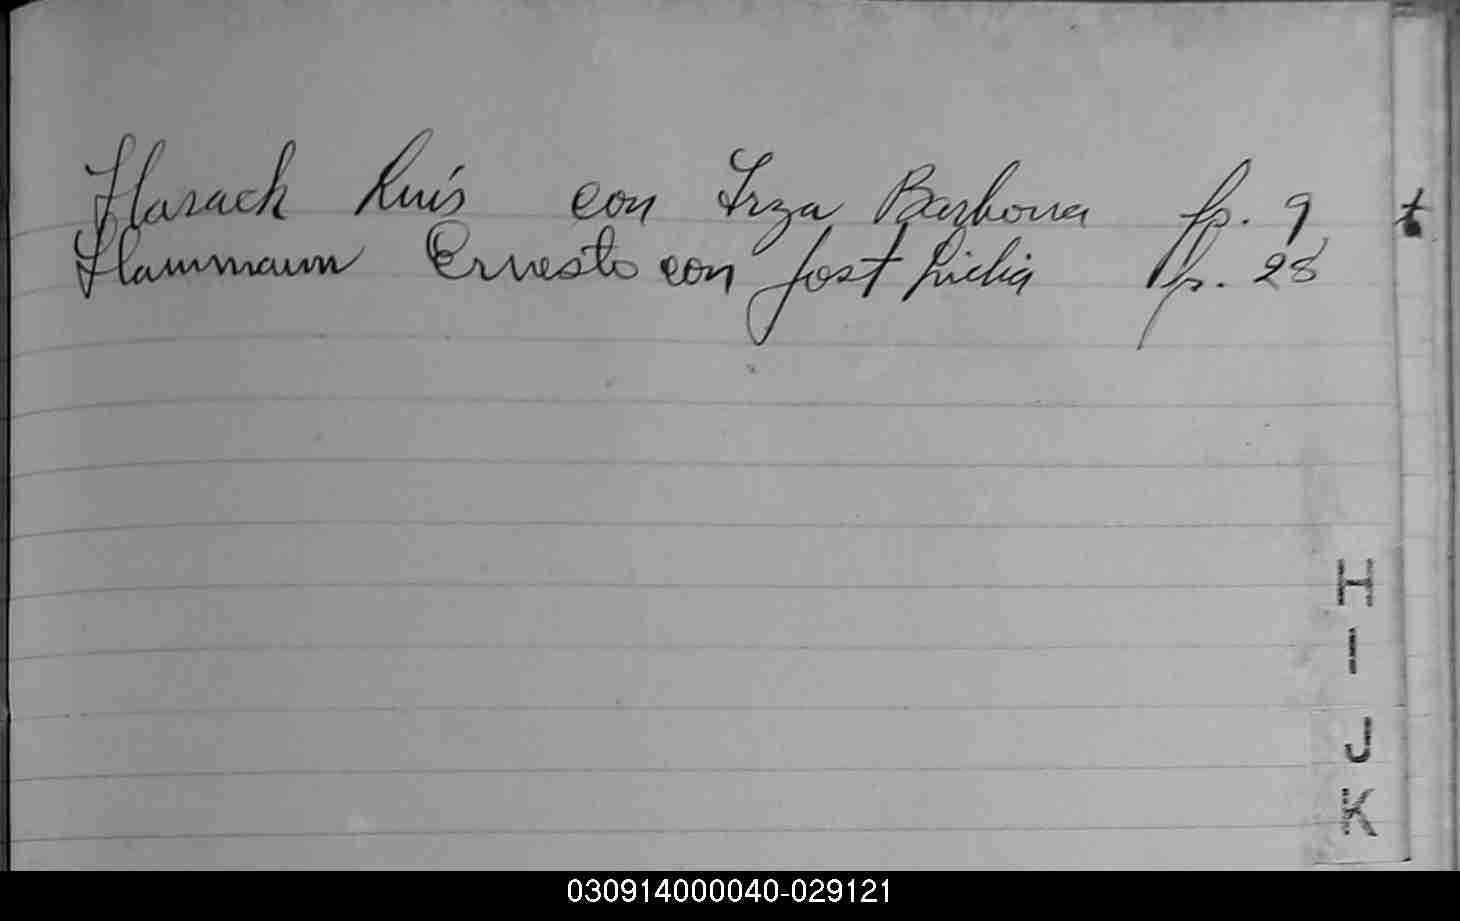 Harach Luis con Irza Barbona fs. 9
Hammann Ernesto con Jost Lidia fs. 28
t
H
I
J
K
030914000040-029121